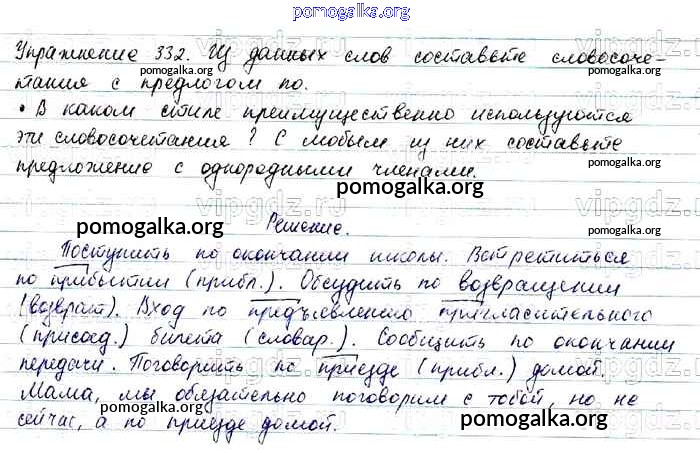 pomogalka.org
Упражнение 332. Из данных слов составьте словосоче-
тания с предлогом по.
pomogalka.org pomogalka.org
• В каком стиле преимущественно используются
эти словосочетания? С любым из них составьте
pomogalka.org
предложение с однородными членами.
pomogalka.org
vipgdz.ru
pomogalka.org Решение. pomogalka.org
Поступить по окончании школы. Встретиться
по прибытии (прибл.). Обсудить по возвращении
(возврат). Вход по предъявлению пригласительного
(присоед.) билета (словар.). Сообщить по окончании
pomogalka.org pomogalka.org
передачи. Поговорить по приезде (прибл.) домой.
Мама, мы обязательно поговорим с тобой, но не
pomogalka.org pomogalka.org
сейчас, а по приезде домой.